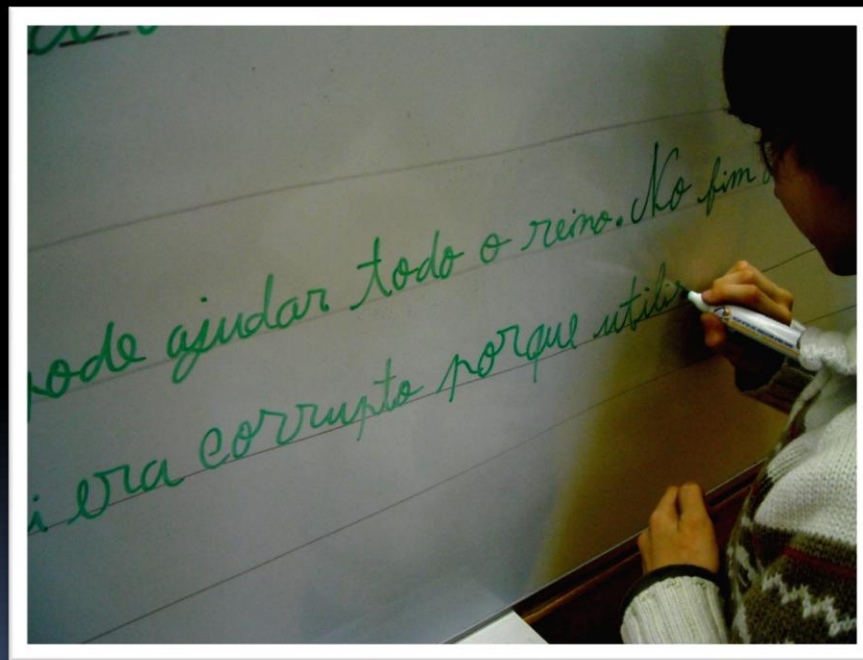 pode ajudar todo o reino. No fim
era corrupto porque utilis